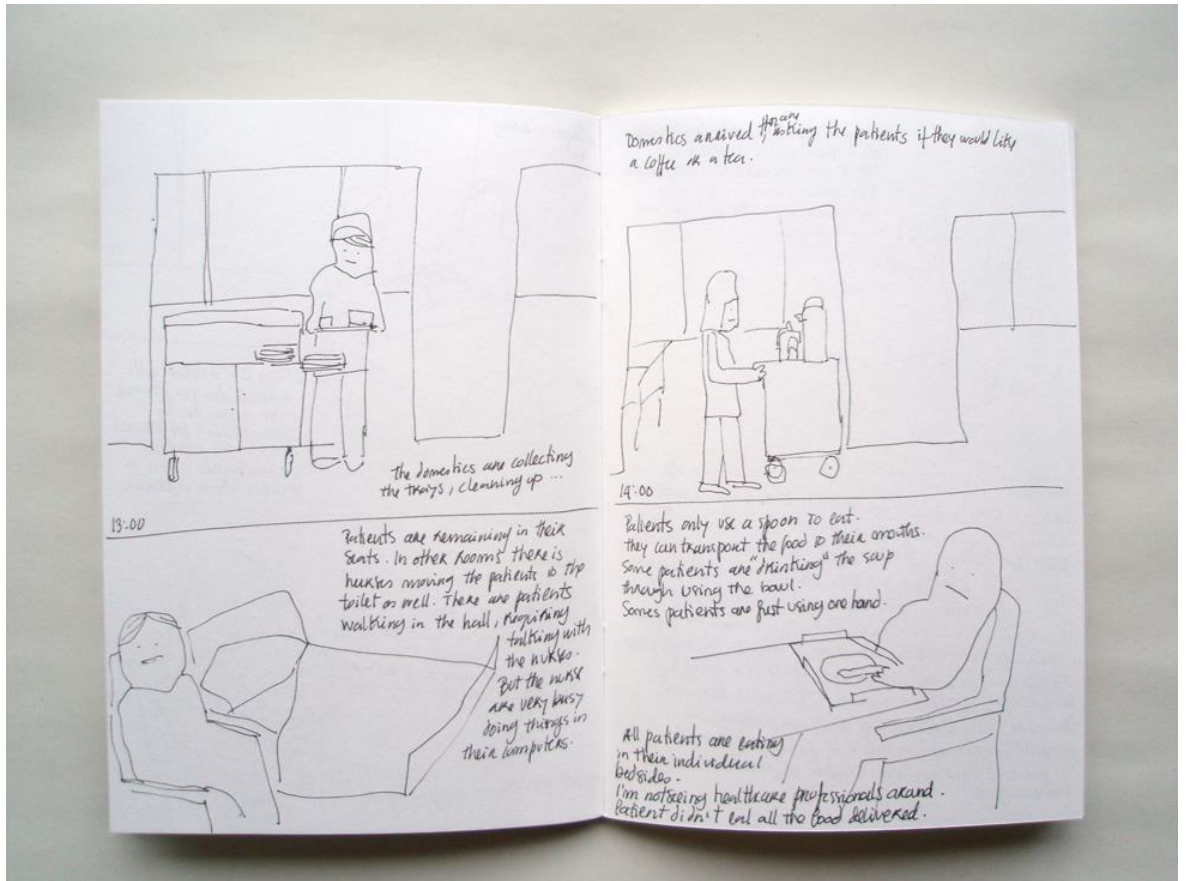 The domestics are collecting
the trays, cleaning up ...
13:00
Patients are remaining in their
seats. In other rooms there is
nurses moving the patients to the
toilet as well. There are patients
walking in the hall, requiring
talking with
the nurses.
But the nurse
are very busy
doing things in
their computers.
Domestics arrived they are asking the patients if they would like
a coffee or a tea.
14:00
Patients only use a spoon to eat.
they can transport the food to their mouths.
Some patients are "drinking" the soup
through using the bowl.
Somes patients are just using one hand.
All patients are eating
in their individual
bedsides.
I'm not seeing healthcare professionals around.
Patient didn't eat all the food delivered.